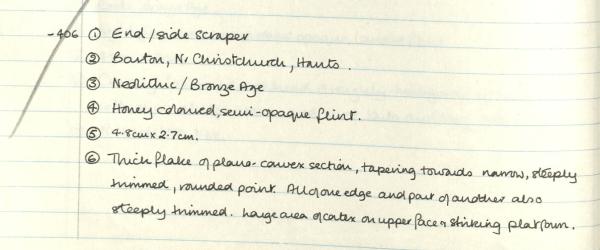 -406 ① End/side scraper
② Barton, Nr Christchurch, Hants.
③ Neolithic/Bronze Age
④ Honey coloured, semi-opaque flint.
⑤ 4.8cm x 2.7cm.
⑥ Thick flake of plano-convex section, tapering towards narrow, steeply
trimmed, rounded point. All of one edge and part of another also
steeply trimmed. Large area of cortex on upper face & striking platform.